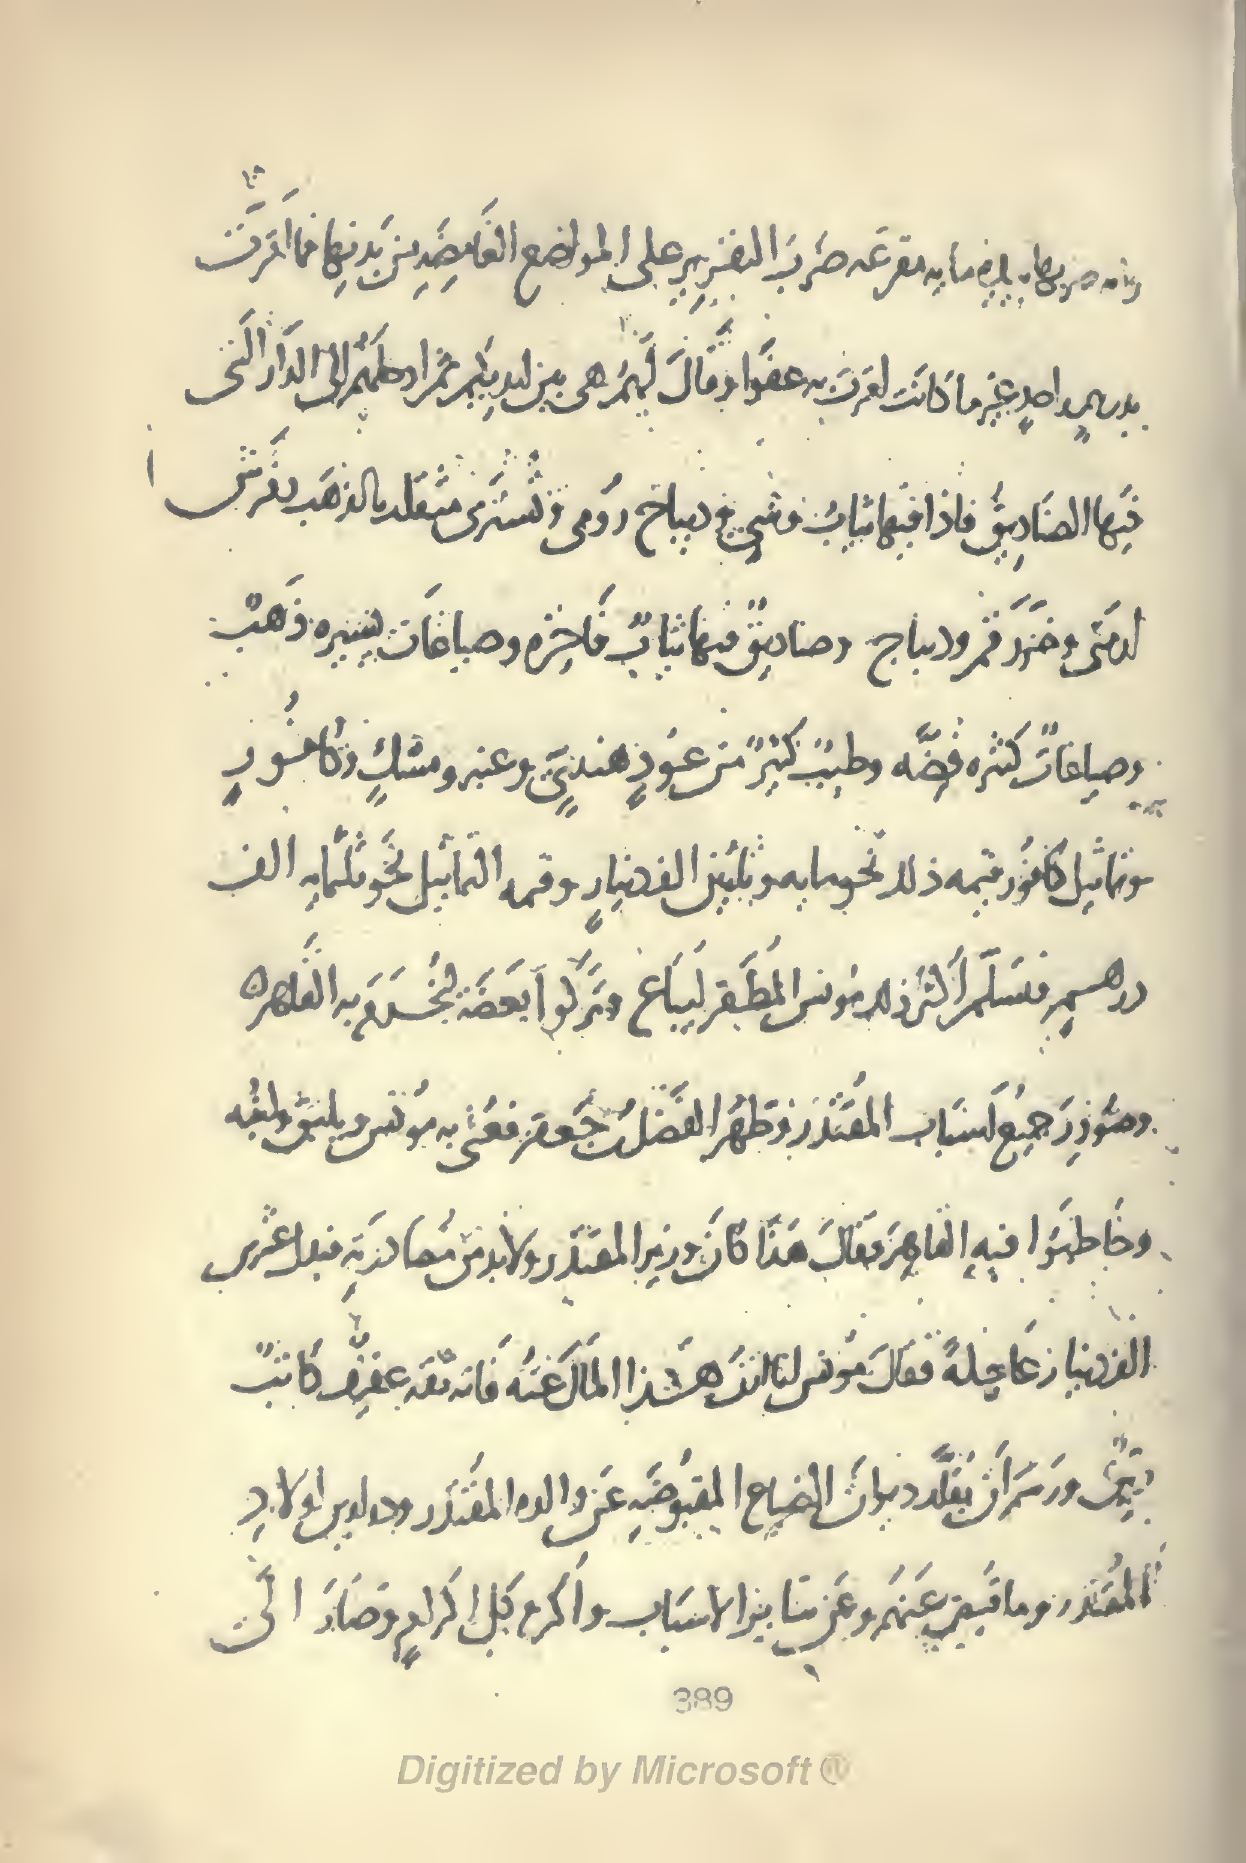 وانه ضربها بيده مايه مقرعه ضرب التقرير على المواضع الغامضه من بدنها فما اقرت
بدرهم واحد غير ما كانت اقرت به عفوا وقال لهم هى بين ايديكم ثم ادخلهم الى الدار التى
فيها الصناديق فاذا فيها ثياب وشى وديباج رومى وتسترى مثقله بالذهب وفرش
ارمنى وخز رقم وديباج وصناديق فيها ثياب فاخره وصياغات يسيره ذهب
وصياغات كثيره فضه وطيب كثير من عود هندى وعنبر ومسك وكافور
وتماثيل كافور قيمه ذلك نحو مايه وثلثين الف دينار وقيمه التماثيل نحو ثلثمايه الف
درهم فتسلم اكثر ذلك مونس المظفر ليباع وتركوا بعضه ليخدم به القاهر
وصودر جميع اسباب المقتدر وظهر الفضل بن جعفر فعنى به مونس ويلبق وابنه
وخاطبوا فيه القاهر فقال هذا كان وزير المقتدر ولا بد من مصادرته فبذل عشرين
الف دينار عاجلة فقال مونس لنا ازن هذا المال عنه فانه ثقه عفيف كاتب
دين ورسم ان يقلد ديوان الضياع المقبوضه عن والده المقتدر وعن اولاد
المقتدر وما قبض عنهم وعن سائر الاسباب واكرم كل اكرام وصار الى
389
Digitized by Microsoft®